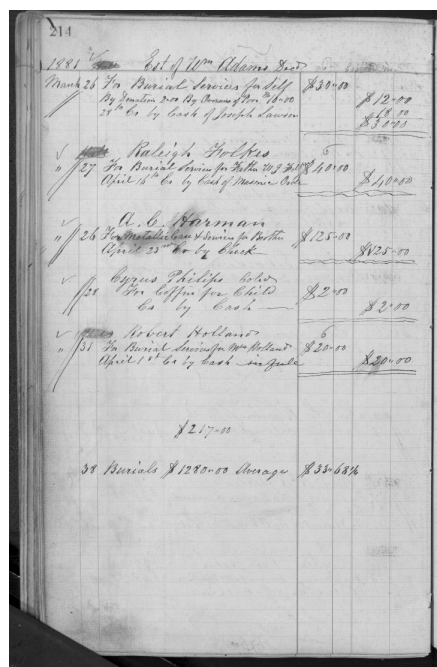 214
1881 Est. of Wm Adams Decd
March 26 For Burial Services for Self $30.00
By Donation 2.00 By Overseers of Poor 10.00 $12.00
28th Cr by Cash of Joseph Lawson 18.00
$30.00
Raleigh Folkes
" 27 For Burial Services for Father $40.00
April 15th Cr by Cash of Masonic Order $40.00
A. C. Harman
" 26 For Metallic Case & Service for Brother $125.00
April 23rd Cr by Check $125.00
Cyrus Philips Cold
" 28 For Coffin for Child $2.00
Cr by Cash $2.00
Robert Holland
" 31 For Burial Services for Mrs Holland $20.00
April 1st Cr by Cash in full $20.00
$217.00
38 Burials $1280.00 Average $33.68